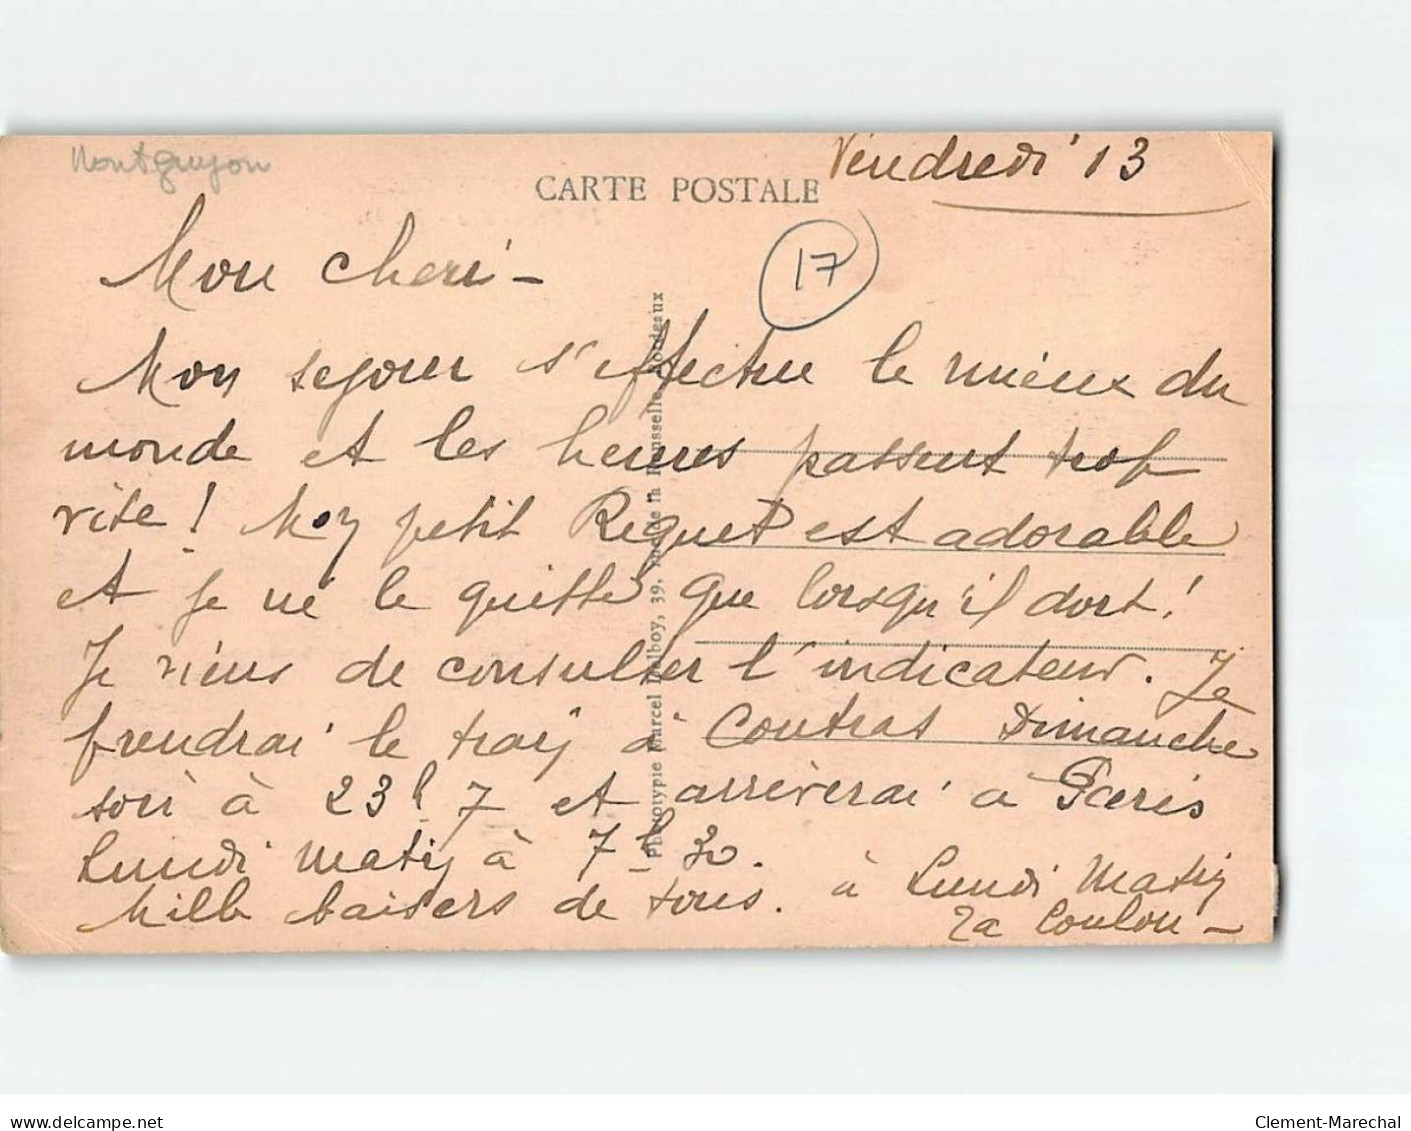 Montguyon
CARTE POSTALE
Vendredi 13
17
Mon cheri -
Mon sejour s'effectue le mieux du
monde et les heures passent trop
vite ! Mon petit Riquet est adorable
et je ne le quitte que lorsqu'il dort !
Je viens de consulter l'indicateur. Je
prendrai le train à Coutras Dimanche
soir à 23h 7 et arriverai à Paris
Lundi matin à 7h 30.
Mille baisers de tous. à Lundi Matin
Ta Loulou -
Phototypie Marcel Delboy, 39, Bordeaux
Clement-Marechal